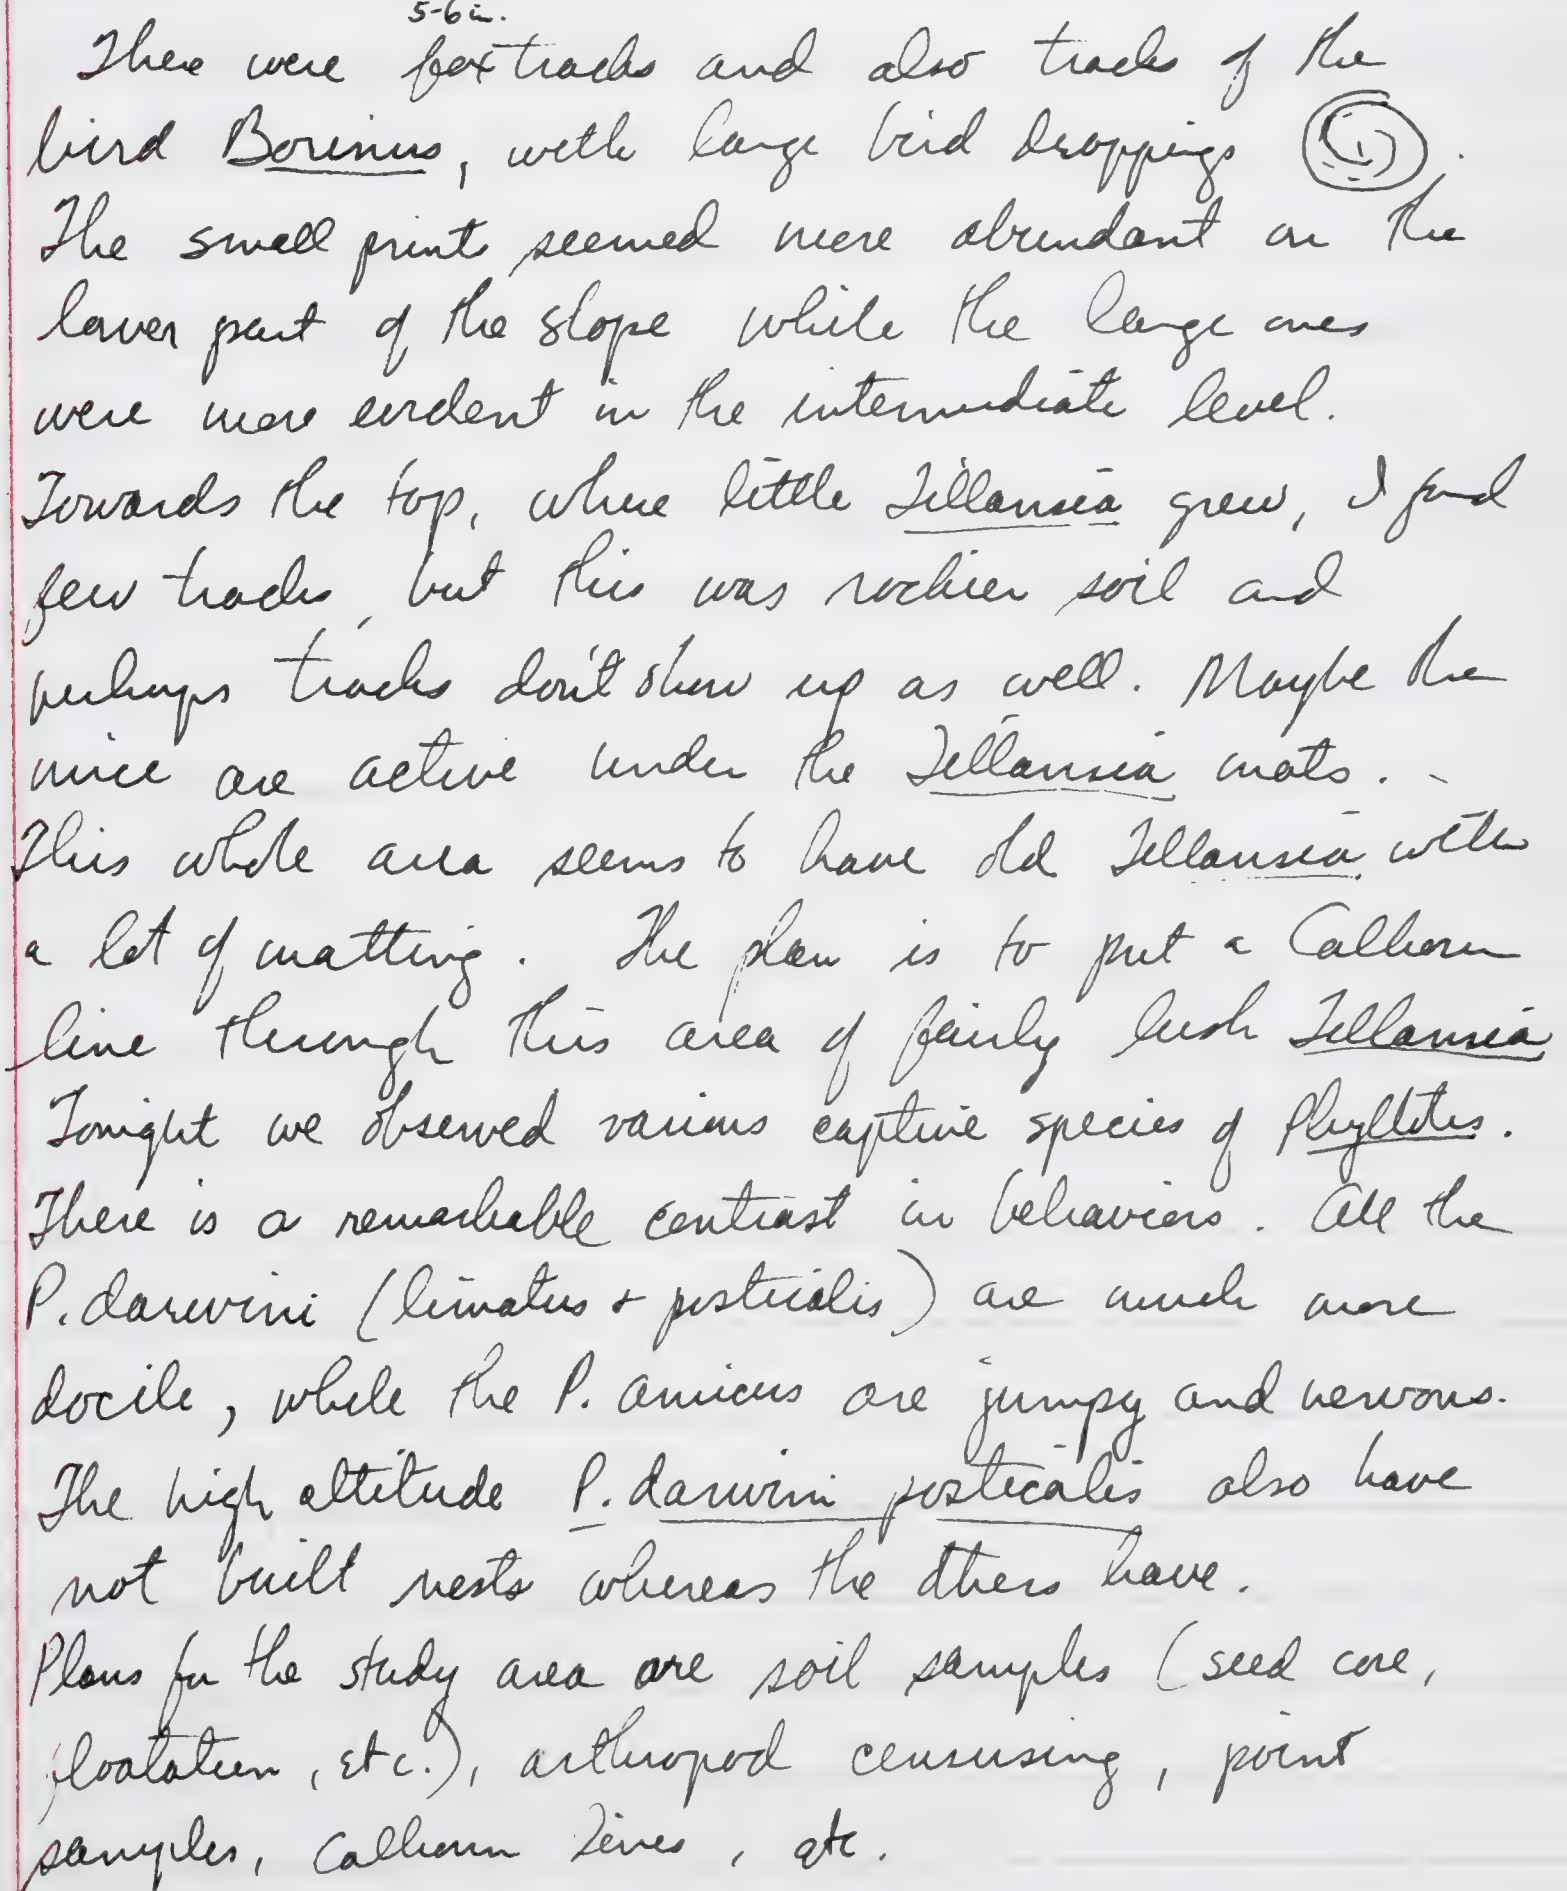 5-6 in.
There were fox tracks and also tracks of the
bird Borinus, with large bird droppings
The small prints seemed more abundant on the
lower part of the slope while the large ones
were more evident in the intermediate level.
Towards the top, where little Tillansia grew, I found
few tracks, but this was rockier soil and
perhaps tracks don't show up as well. Maybe the
mice are active under the Tillansia mats.
This whole area seems to have old Tillansia with
a lot of matting. The plan is to put a Calhoun
line through this area of fairly lush Tillansia
Tonight we observed various captive species of Phyllotis.
There is a remarkable contrast in behaviors. All the
P. darwini (limatus + posticalis) are much more
docile, while the P. amicus are jumpy and nervous.
The high altitude P. darwini posticalis also have
not built nests whereas the others have.
Plans for the study area are soil samples (seed core,
floatation, etc.), arthropod censusing, point
samples, Calhoun lines, etc.